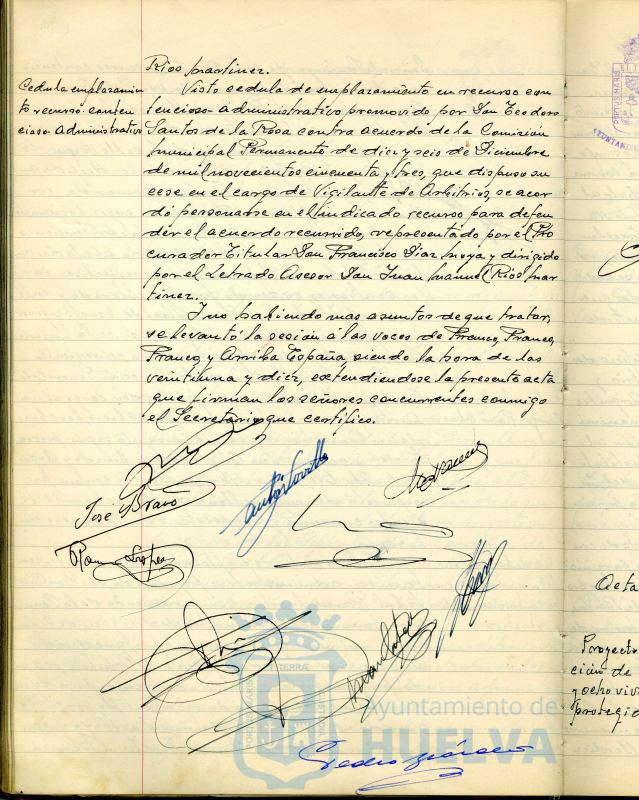 Rios Martinez.
Cedula emplazamien
to recurso conten
cioso-administrativo
Visto cedula de emplazamiento en recurso con
tencioso-administrativo promovido por Don Teodoro
Santos de la Rosa contra acuerdo de la Comisión
Municipal Permanente de diez y seis de Diciembre
de mil novecientos cincuenta y tres, que dispuso su
cese en el cargo de Vigilante de Arbitrios, se acor
dó personarse en el indicado recurso para defen
der el acuerdo recurrido, representado por el Pro
curador Titular Don Francisco Diaz Moya y dirigido
por el Letrado Asesor Don Juan Manuel Rios Mar
tinez.
Y no habiendo mas asuntos de que tratar,
se levantó la sesión á las voces de Franco, Franco,
Franco y Arriba España, siendo la hora de las
veintiuna y diez, extendiendose la presente acta
que firman los señores concurrentes conmigo
el Secretario que certifico.
José Bravo
Acta
Proyecto
ción de
y ocho vivi
protegid
Ayuntamiento de
HUELVA